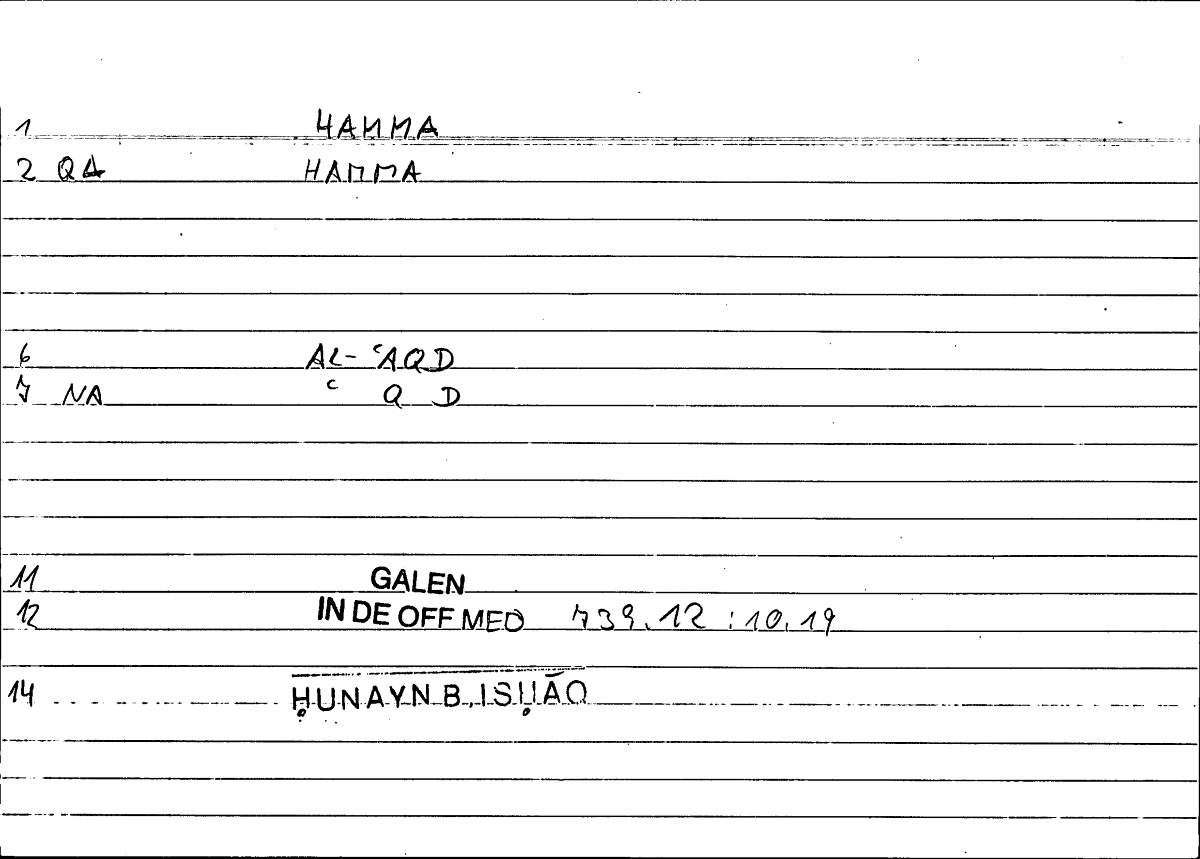 1 HAMMA
2 QA HAMMA
6 AL- ʿAQD
7 NA ʿ Q D
11 GALEN
12 IN DE OFF MED 739.12 : 10.19
14 ḤUNAYN B. ISḤĀQ